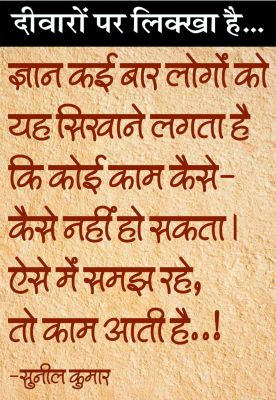 दीवारों पर लिक्खा है...
ज्ञान कई बार लोगों को
यह सिखाने लगता है
कि कोई काम कैसे-
कैसे नहीं हो सकता।
ऐसे में समझ रहे,
तो काम आती है..!
-सुनील कुमार